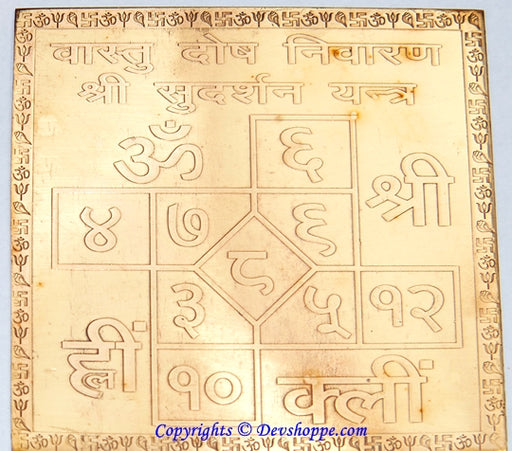 वास्तु दोष निवारण
श्री सुदर्शन यन्त्र
ॐ ६ श्री
४ ७ ६
८
३ ५ १२
ह्रीं १० क्लीं
Copyrights © Devshoppe.com